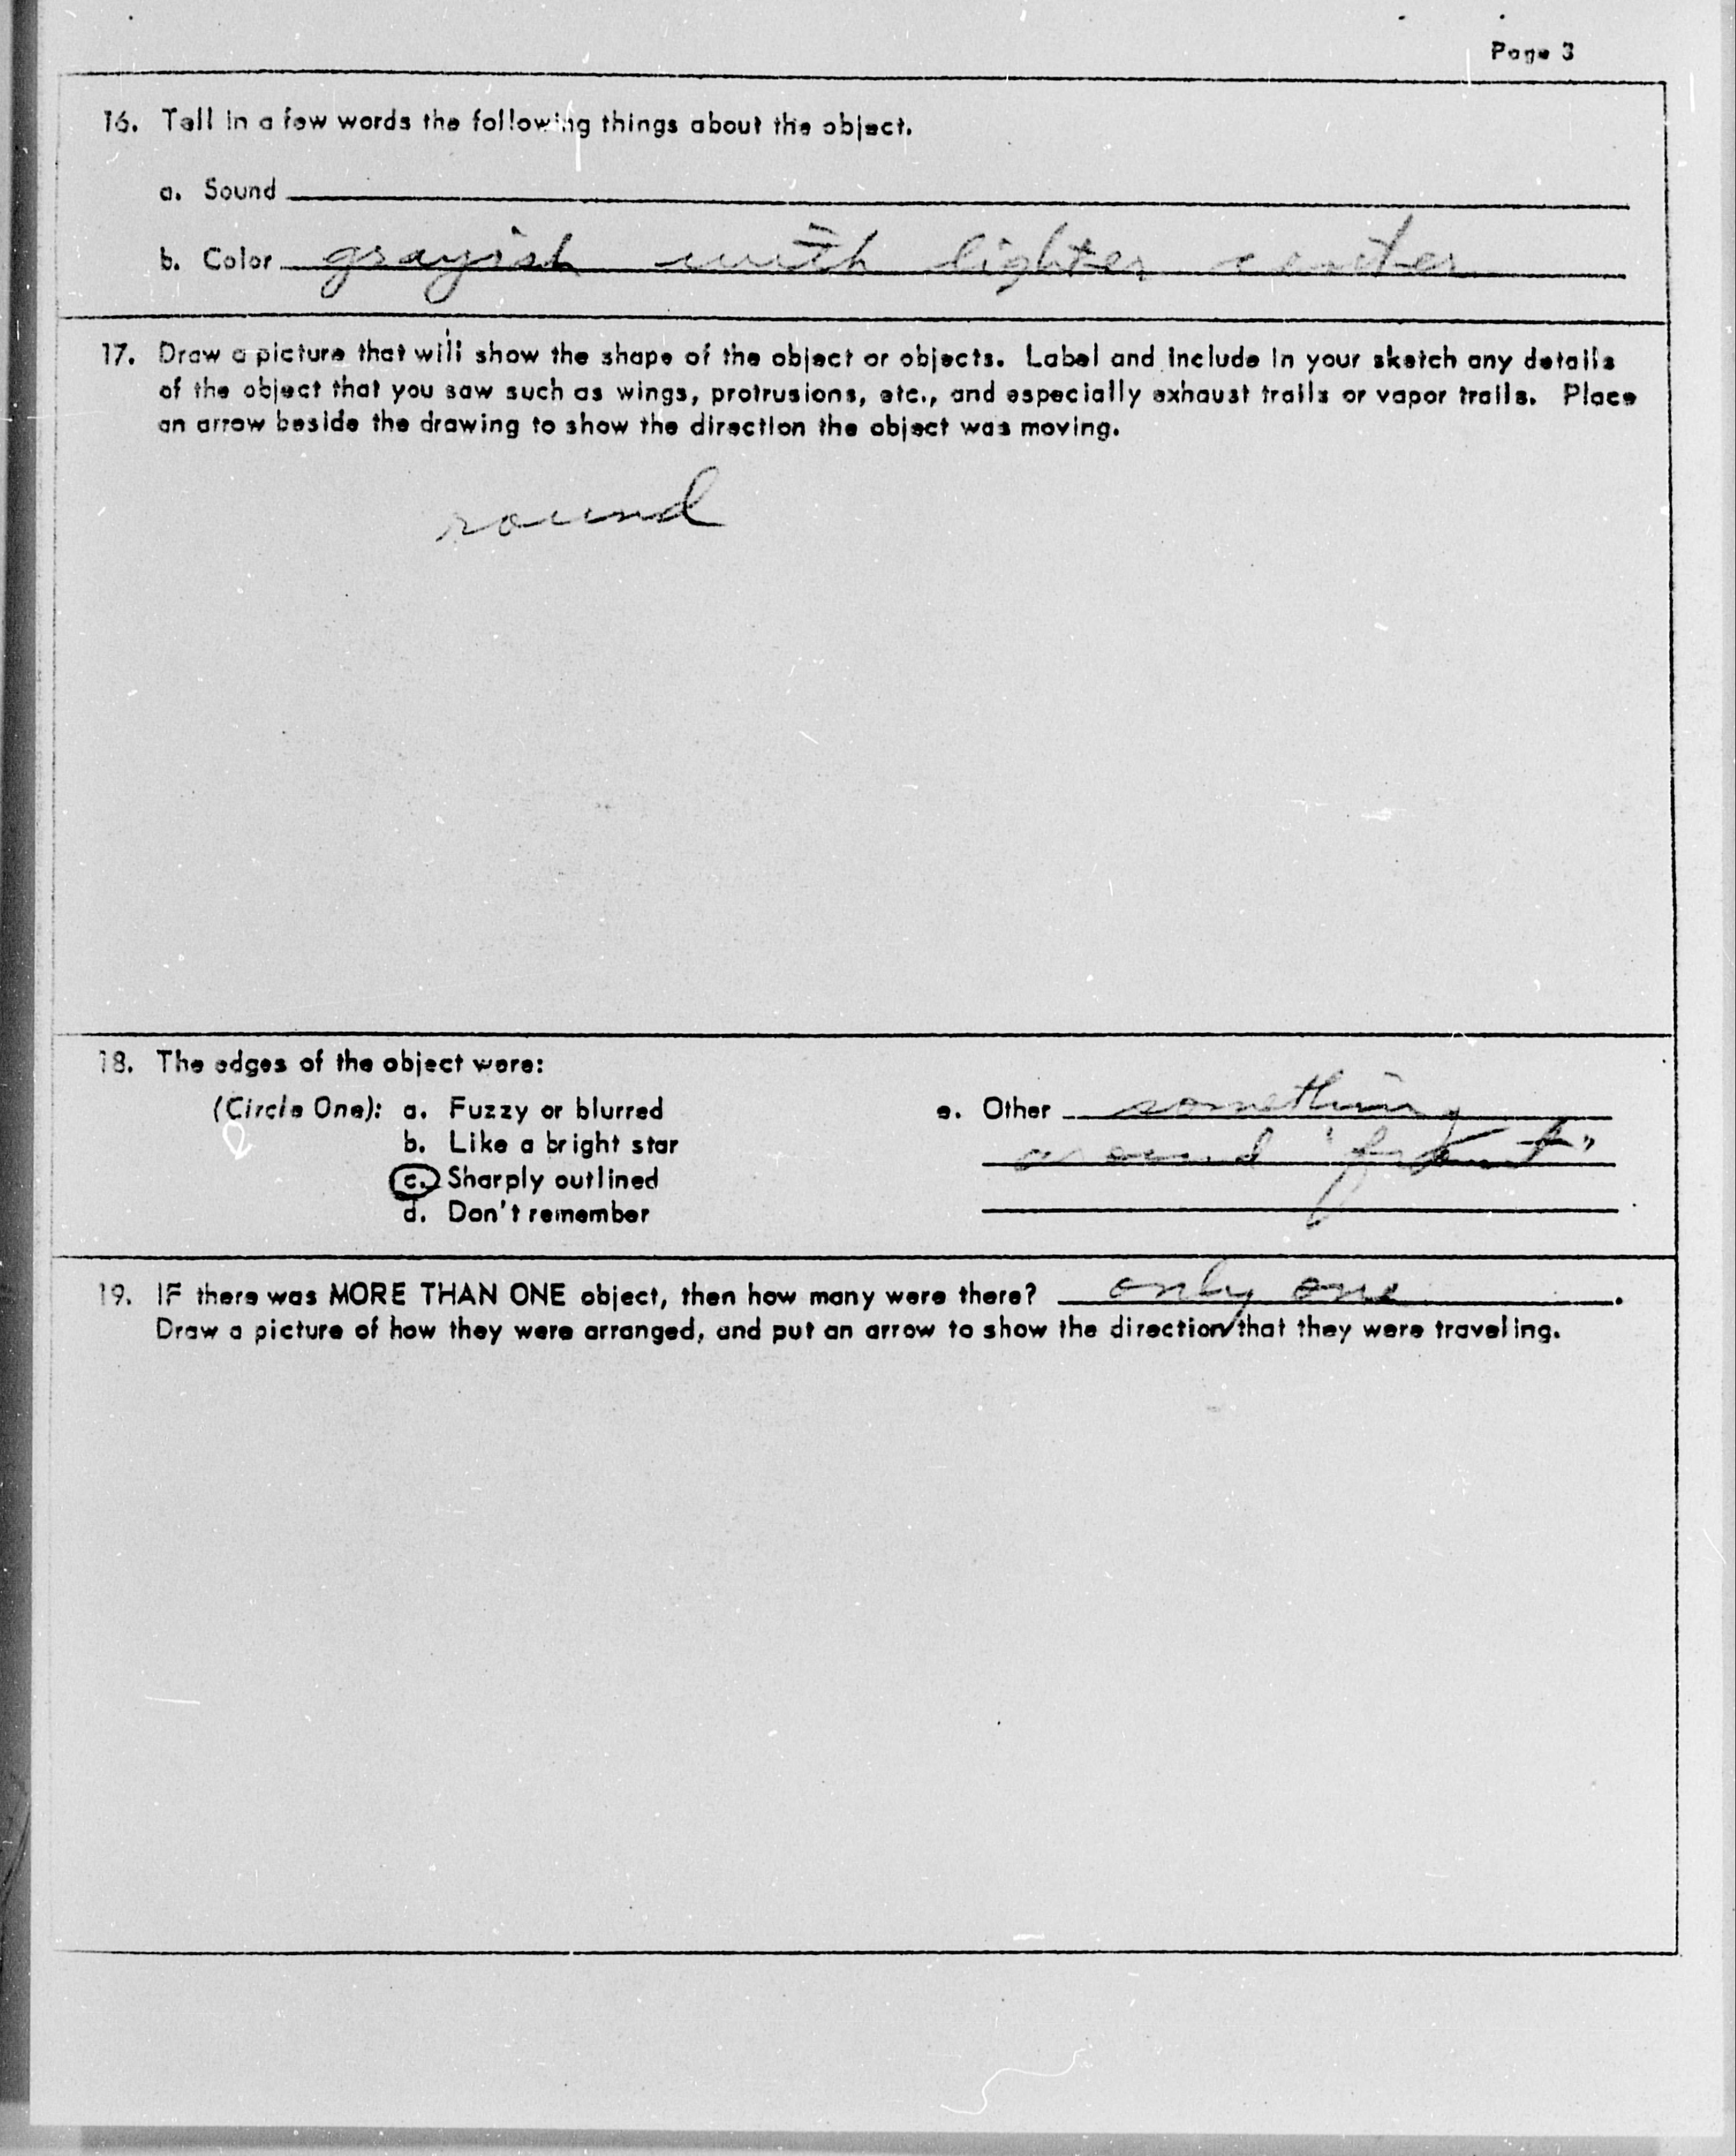 Page 3
16. Tell in a few words the following things about the object.
a. Sound
b. Color grayish with lighter center
17. Draw a picture that will show the shape of the object or objects. Label and include in your sketch any details
of the object that you saw such as wings, protrusions, etc., and especially exhaust trails or vapor trails. Place
an arrow beside the drawing to show the direction the object was moving.
round
18. The edges of the object were:
(Circle One): a. Fuzzy or blurred
b. Like a bright star
c. Sharply outlined
d. Don't remember
e. Other something
around
19. IF there was MORE THAN ONE object, then how many were there? only one.
Draw a picture of how they were arranged, and put an arrow to show the direction that they were traveling.